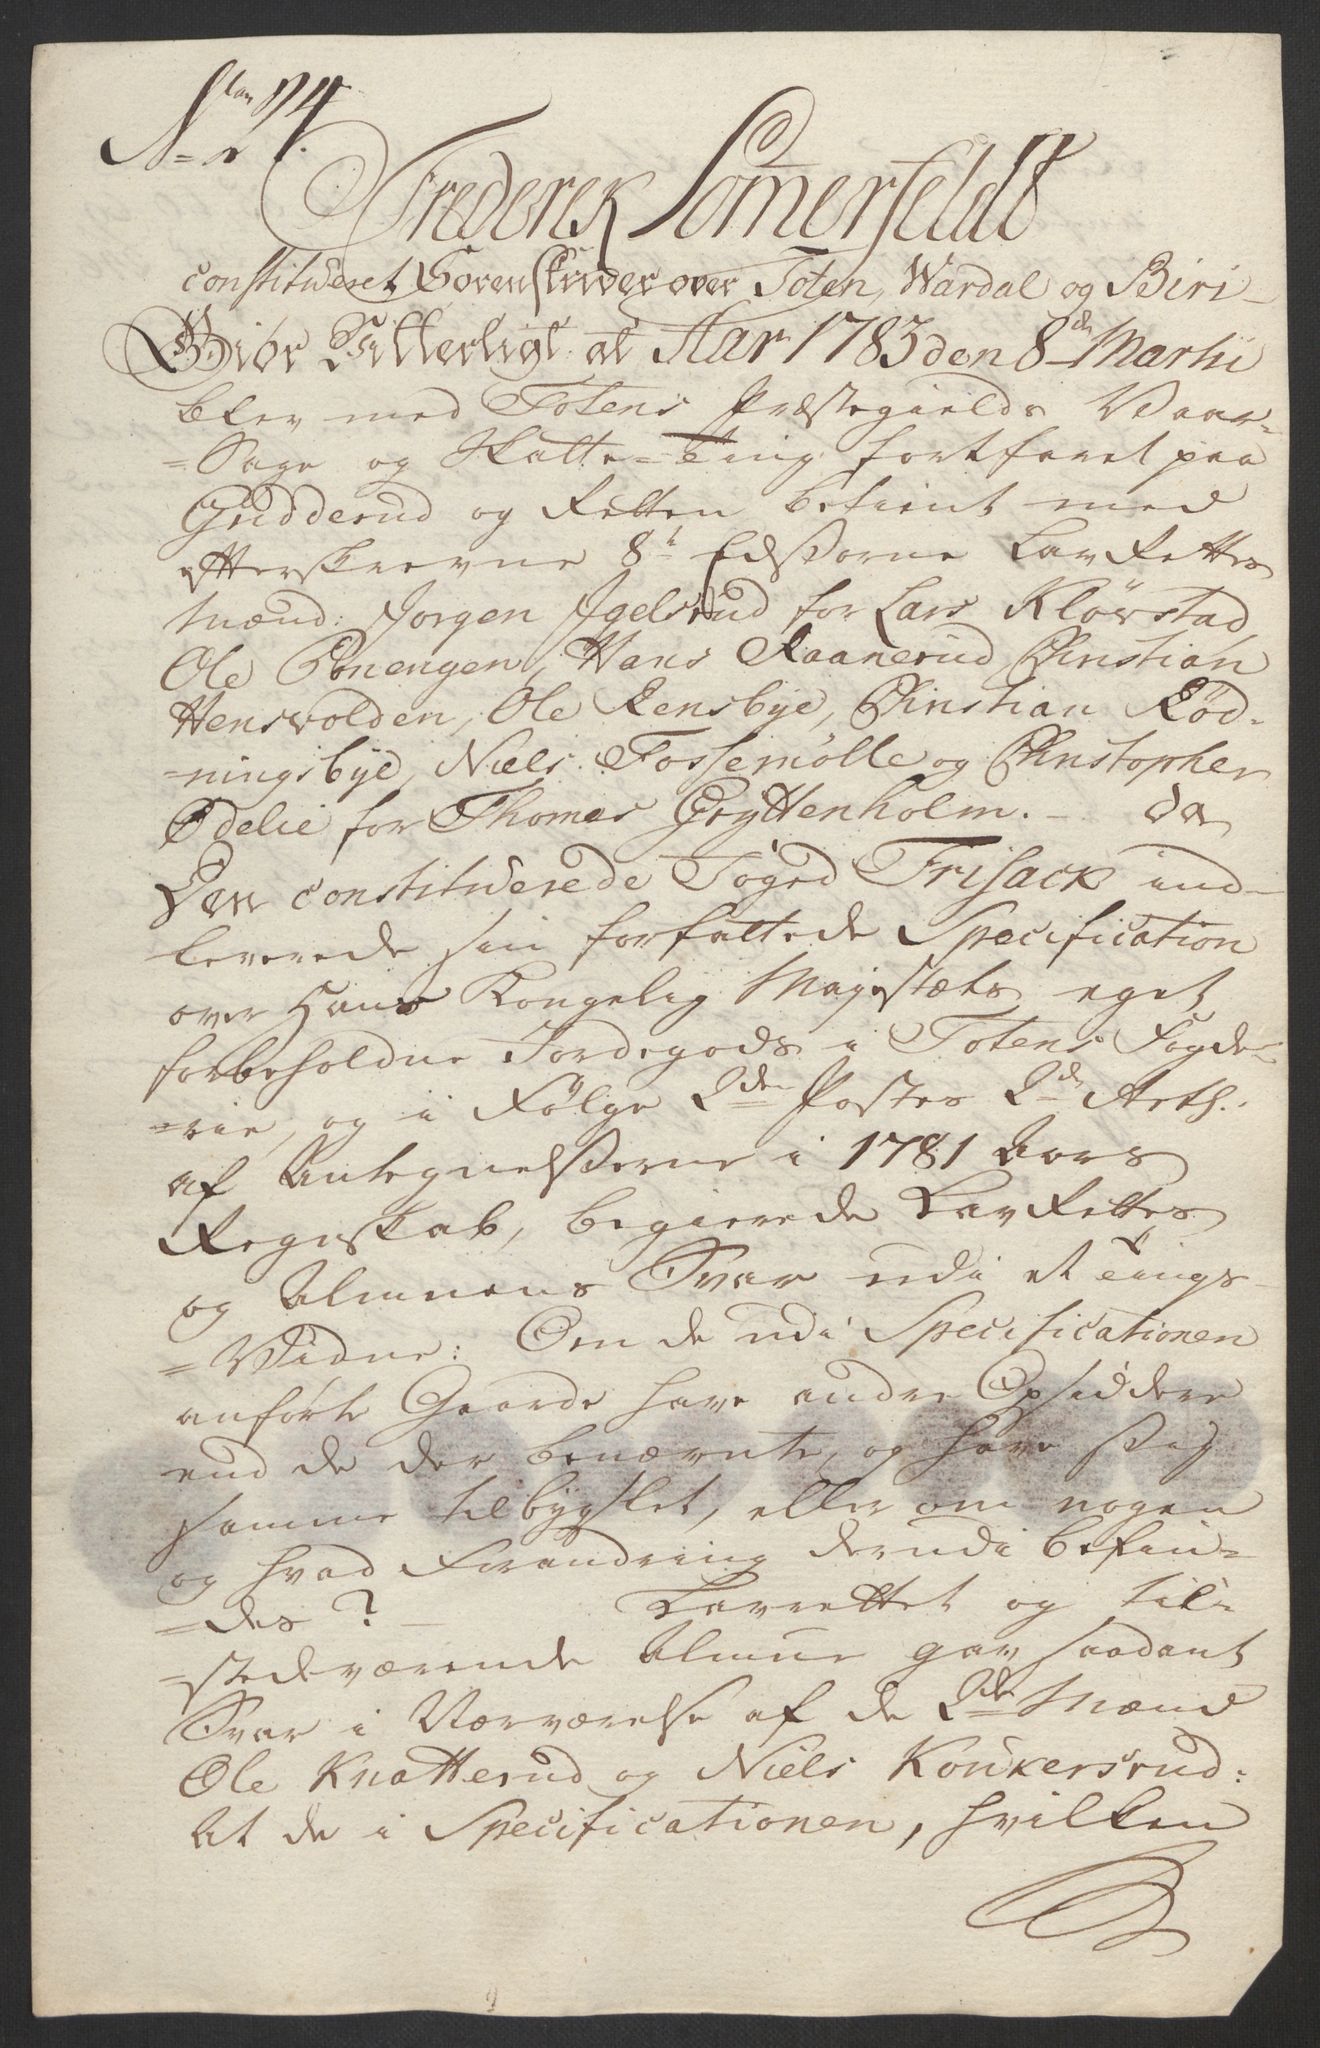 No 24.
Frederek Somerfeldt
constitueret Sorenskriver over Toten, Wardal og Biri
Giör Vitterligt at Aar 1783 den 8de Martii
blev med Totens Præstegields Vaar-
=Sage og Skatte=Ting fortfaret paa
Gudderud og Retten betient med
efterskrevne 8te Edsvorne LavRettes
Mænd: Jorgen Igelsrud for Lars Klövstad,
Ole Ponengen, Hans Raanerud, Christian
Hensvolden, Ole Rensbye, Christian Röd-
=ningsbye, Niels Fossemölle og Christopher
Ödelie for Thomas Gryttenholm. - da
Den constituerede Foged Frisack ind-
leverede sin forfattede Specification
over Hans Kongelig Majestæts eget
forbeholdne Jordegods i Totens Fogde-
=rie, og i Fölge 2den Postes 2de Arth:
af Antegnelserne i 1781 Aars
Regnskab, begierede LavRettes
og Almuens Svar udi et Tings-
=Vidne: Om de udi Specificationen
anförte Gaarde have andre Opsiddere
end de der benævnte, og have sig
samme tilbygslet, eller om nogen
og hvad Forandring derudi befin-
=des? - Lavrettet og til-
=stedværende Almue gav saadant
Svar i Nærværelse af de 2de Mænd
Ole Knatterud og Niels Konkersrud:
At de i Specificationen, hvilken